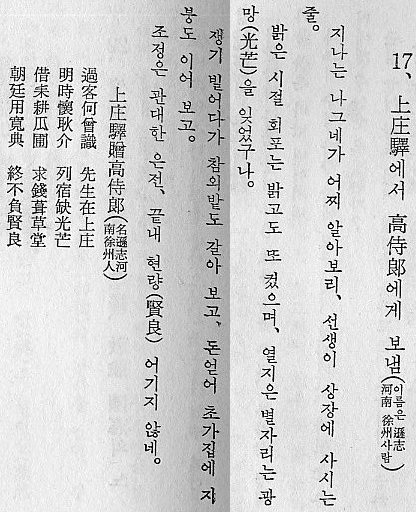 17、上庄驛에서 高侍郎에게 보냄(이름은 遜志 河南 徐州사람)
지나는 나그네가 어찌 알아보리、선생이 상장에 사시는
줄。
밝은 시절 회포는 밝고도 또 컸으며、열지은 별자리는 광
망(光芒)을 잊었구나。
쟁기 빌어다가 참외밭도 갈아 보고、돈얻어 초가집에 지
붕도 이어 보고。
조정은 관대한 은전、끝내 현량(賢良) 어기지 않네。
上庄驛贈高侍郎(名遜志河南徐州人)
過客何曾識 先生在上庄
明時懷耿介 列宿缺光芒
借耒耕瓜圃 求錢葺草堂
朝廷用寬典 終不負賢良